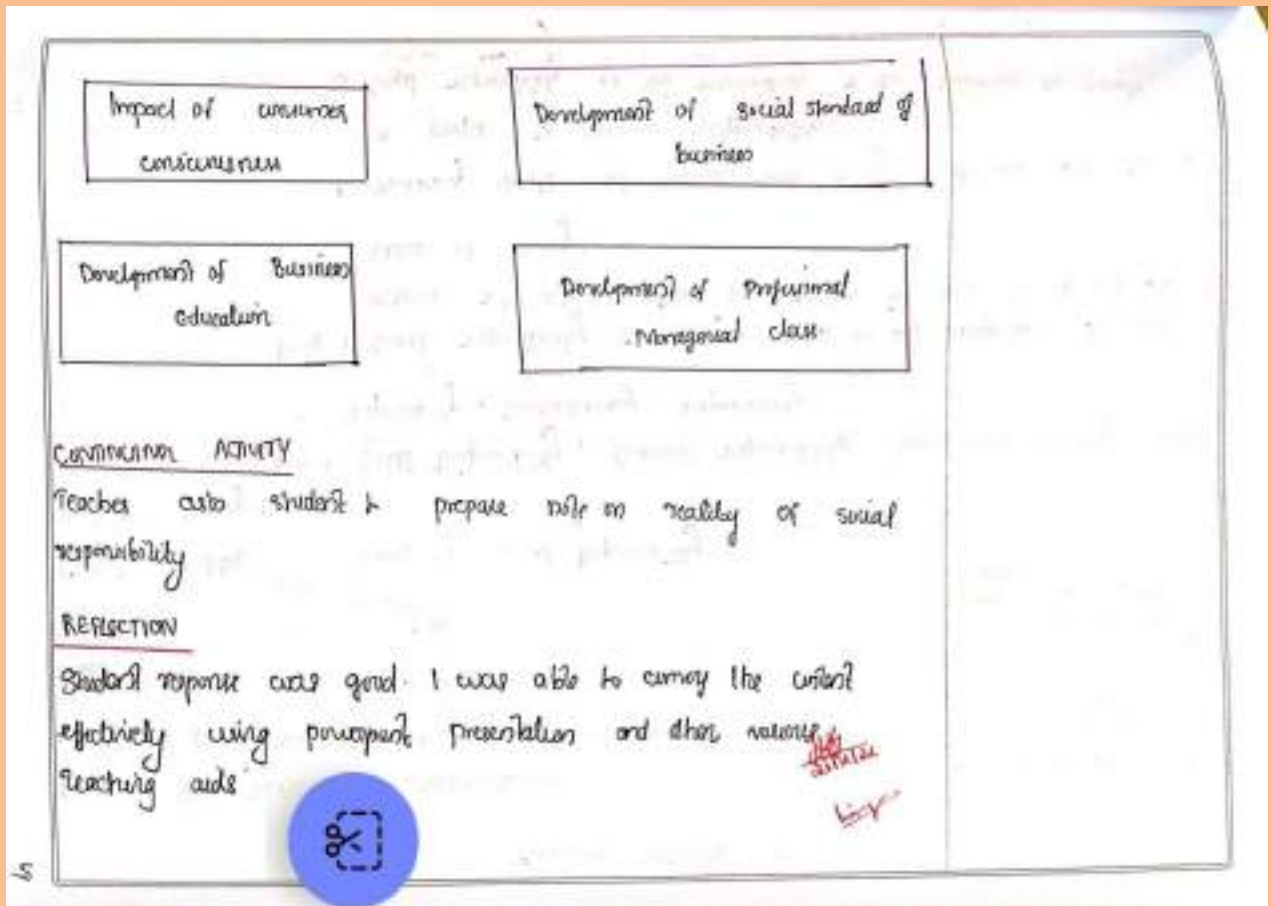 Impact of consumer
consciousness
Development of social standard of
business
Development of Business
education
Development of Professional
Managerial class
CONTINUING ACTIVITY
Teacher asks student to prepare note on reality of social
responsibility
REFLECTION
Student response was good. I was able to convey the content
effectively using powerpoint presentation and other various
teaching aids